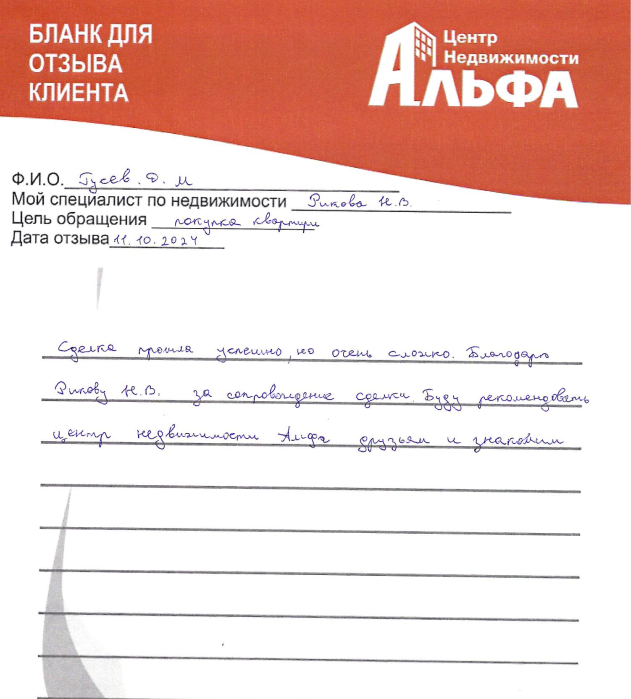 БЛАНК ДЛЯ
ОТЗЫВА
КЛИЕНТА
Центр
Недвижимости
АЛЬФА
Ф.И.О. Гусев. Д. М
Мой специалист по недвижимости Рикова Н.В.
Цель обращения покупка квартири
Дата отзыва 11.10.2024
Сделка прошла успешно, но очень сложно. Благодарю
Рикову Н.В. за сопровождение сделки. Буду рекомендовать
центр недвижимости Альфа друзьям и знакомим